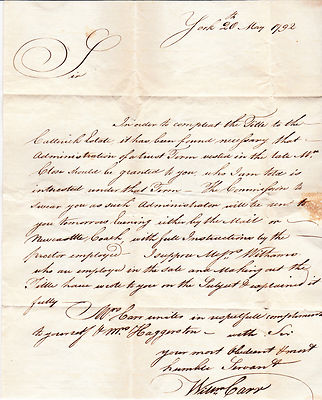 York 20th May 1792
Sir
In order to compleat the Title to the
Catterick Estate it has been found necessary that
Administration of a trust Term vested in the late Mrs
Close should be granted to you who I am told is
interested under that Term – The Commission to
Swear you as such Administrator will be sent to
you tomorrow Evening either by the Mail or
Newcastle Coach with full Instructions by the
proctor employed. I suppose Messrs Withams
who are employed in the sale and Making out the
Titles have wrote to you on the Subject & explained it
fully
Mrs Carr unites in respectfull complements
to yourself & Mrs Haggerston – with Sir
your most Obedient & most
humble Servant
Willm Carr